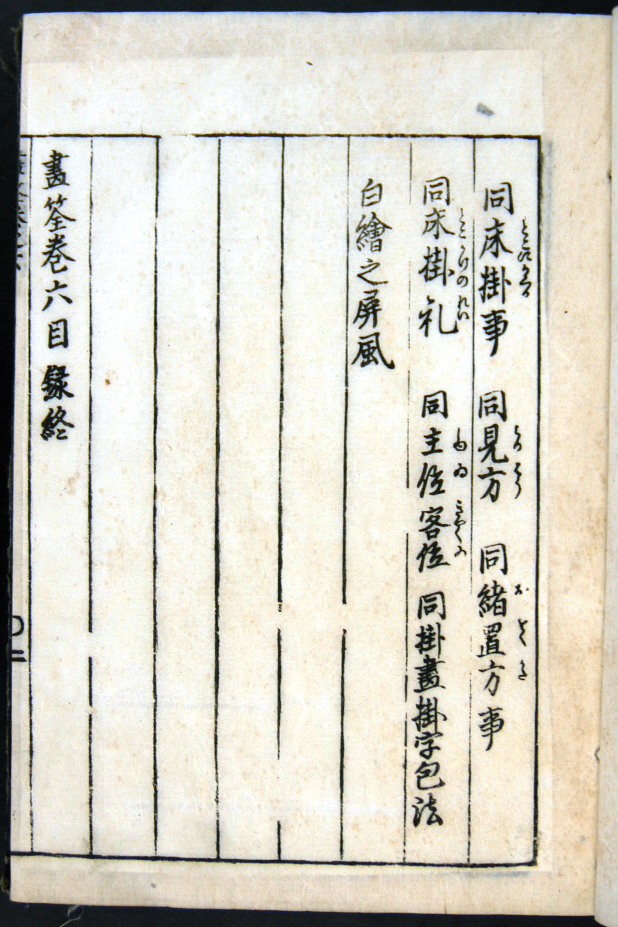 同床掛事 同見方 同緒置方事
同床掛礼 同主位客位 同掛畫掛字包法
白繪之屏風
畫筌巻六目録終